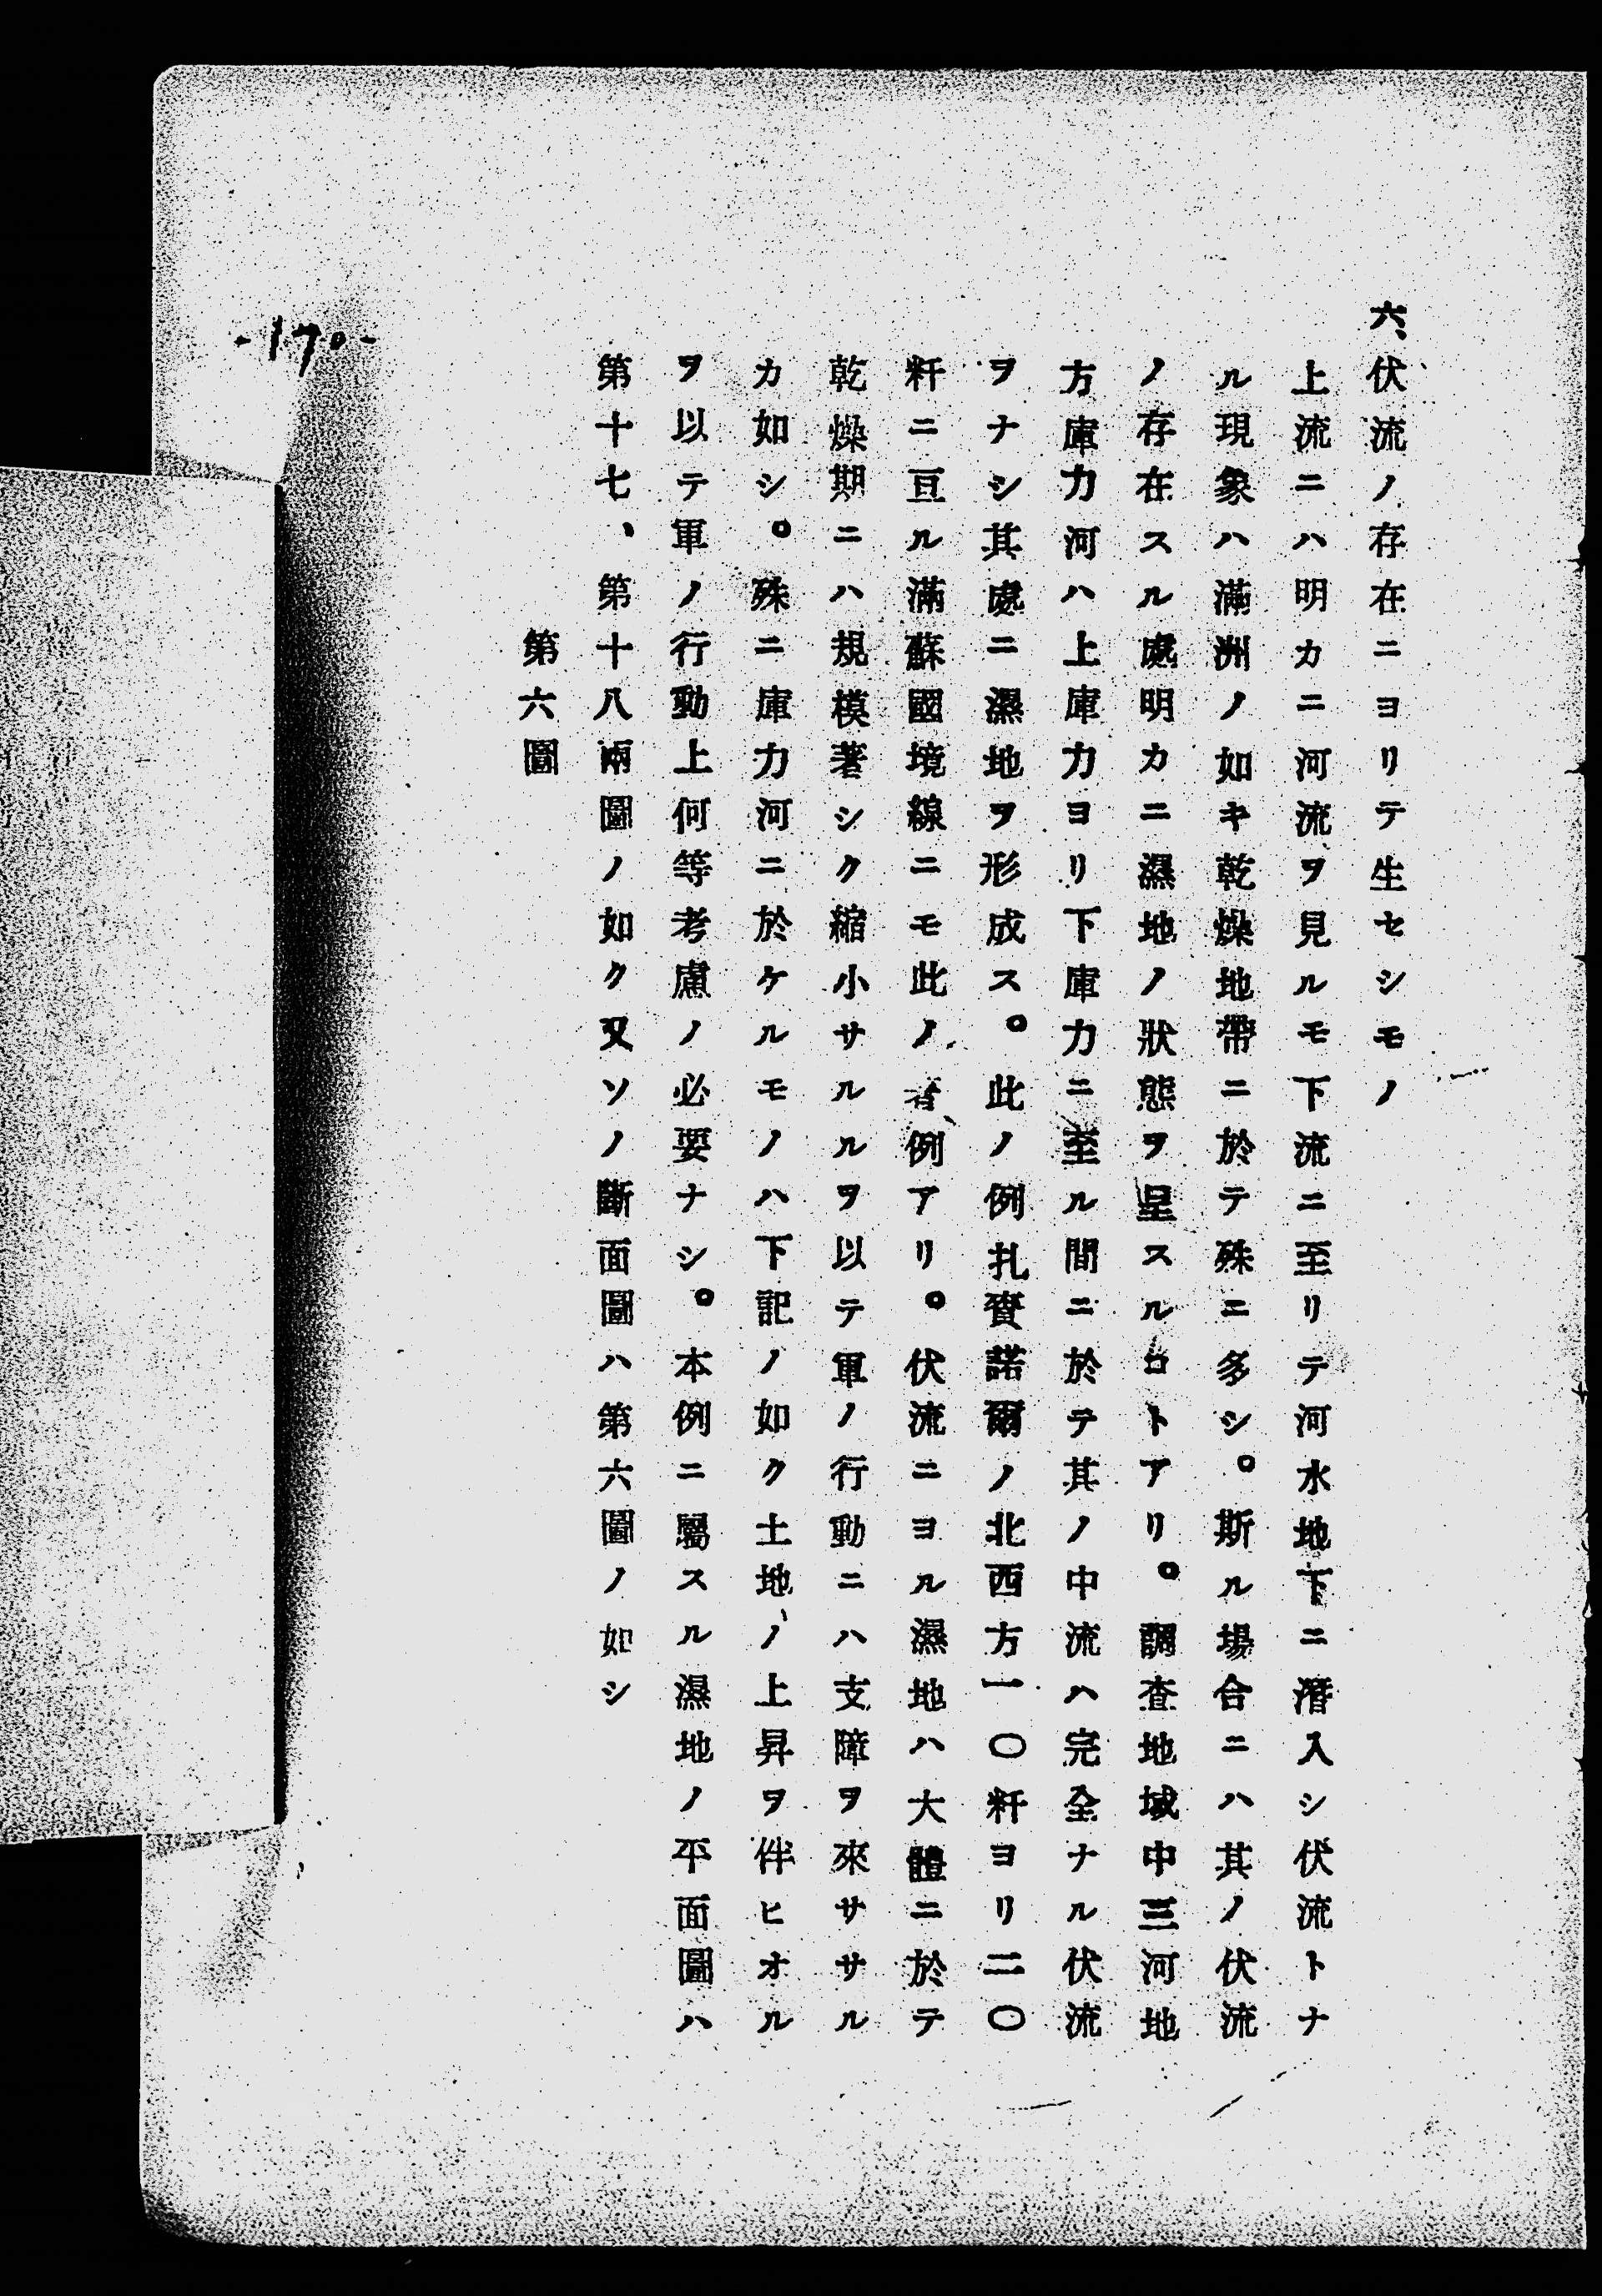 六、伏流ノ存在ニヨリテ生セシモノ
上流ニハ明カニ河流ヲ見ルモ下流ニ至リテ河水地下ニ潛入シ伏流トナ
ル現象ハ滿洲ノ如キ乾燥地帶ニ於テ殊ニ多シ。斯ル場合ニハ其ノ伏流
ノ存在スル處明カニ濕地ノ狀態ヲ呈スルコトアリ。調查地域中三河地
方庫力河ハ上庫力ヨリ下庫力ニ至ル間ニ於テ其ノ中流ハ完全ナル伏流
ヲナシ其處ニ濕地ヲ形成ス。此ノ例扎賚諾爾ノ北西方一〇粁ヨリ二〇
粁ニ亘ル滿蘇國境線ニモ此ノ者例アリ。伏流ニヨル濕地ハ大體ニ於テ
乾燥期ニハ規模著シク縮小サルルヲ以テ軍ノ行動ニハ支障ヲ來ササル
カ如シ。殊ニ庫力河ニ於ケルモノハ下記ノ如ク土地ノ上昇ヲ伴ヒオル
ヲ以テ軍ノ行動上何等考慮ノ必要ナシ。本例ニ屬スル濕地ノ平面圖ハ
第十七、第十八兩圖ノ如ク又ソノ斷面圖ハ第六圖ノ如シ
第六圖
-170-